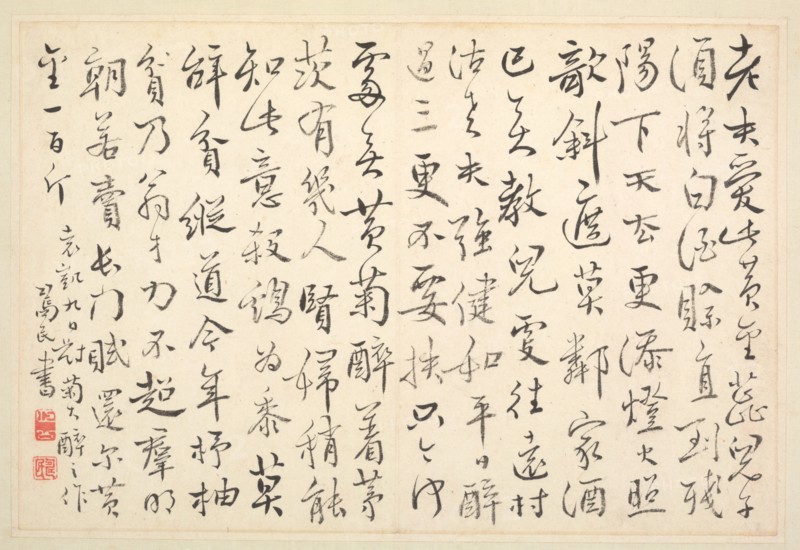 老夫愛此黃金蕊兒子
須將白酒賖直到殘
陽下天去更添燈火照
欹斜遮莫鄰家酒
已无教兒更往遠村
沽老夫強健如平日醉
過三更不要扶只今何
處无黃菊醉著茅
茨有幾人賢婦稍能
知此意殺鷄為黍莫
辭貧縱道今年杼柚
貧乃翁才力不超羣明
朝若賣長門賦還尔黃
金一百斤 袁凱九日對菊大醉之作
民書